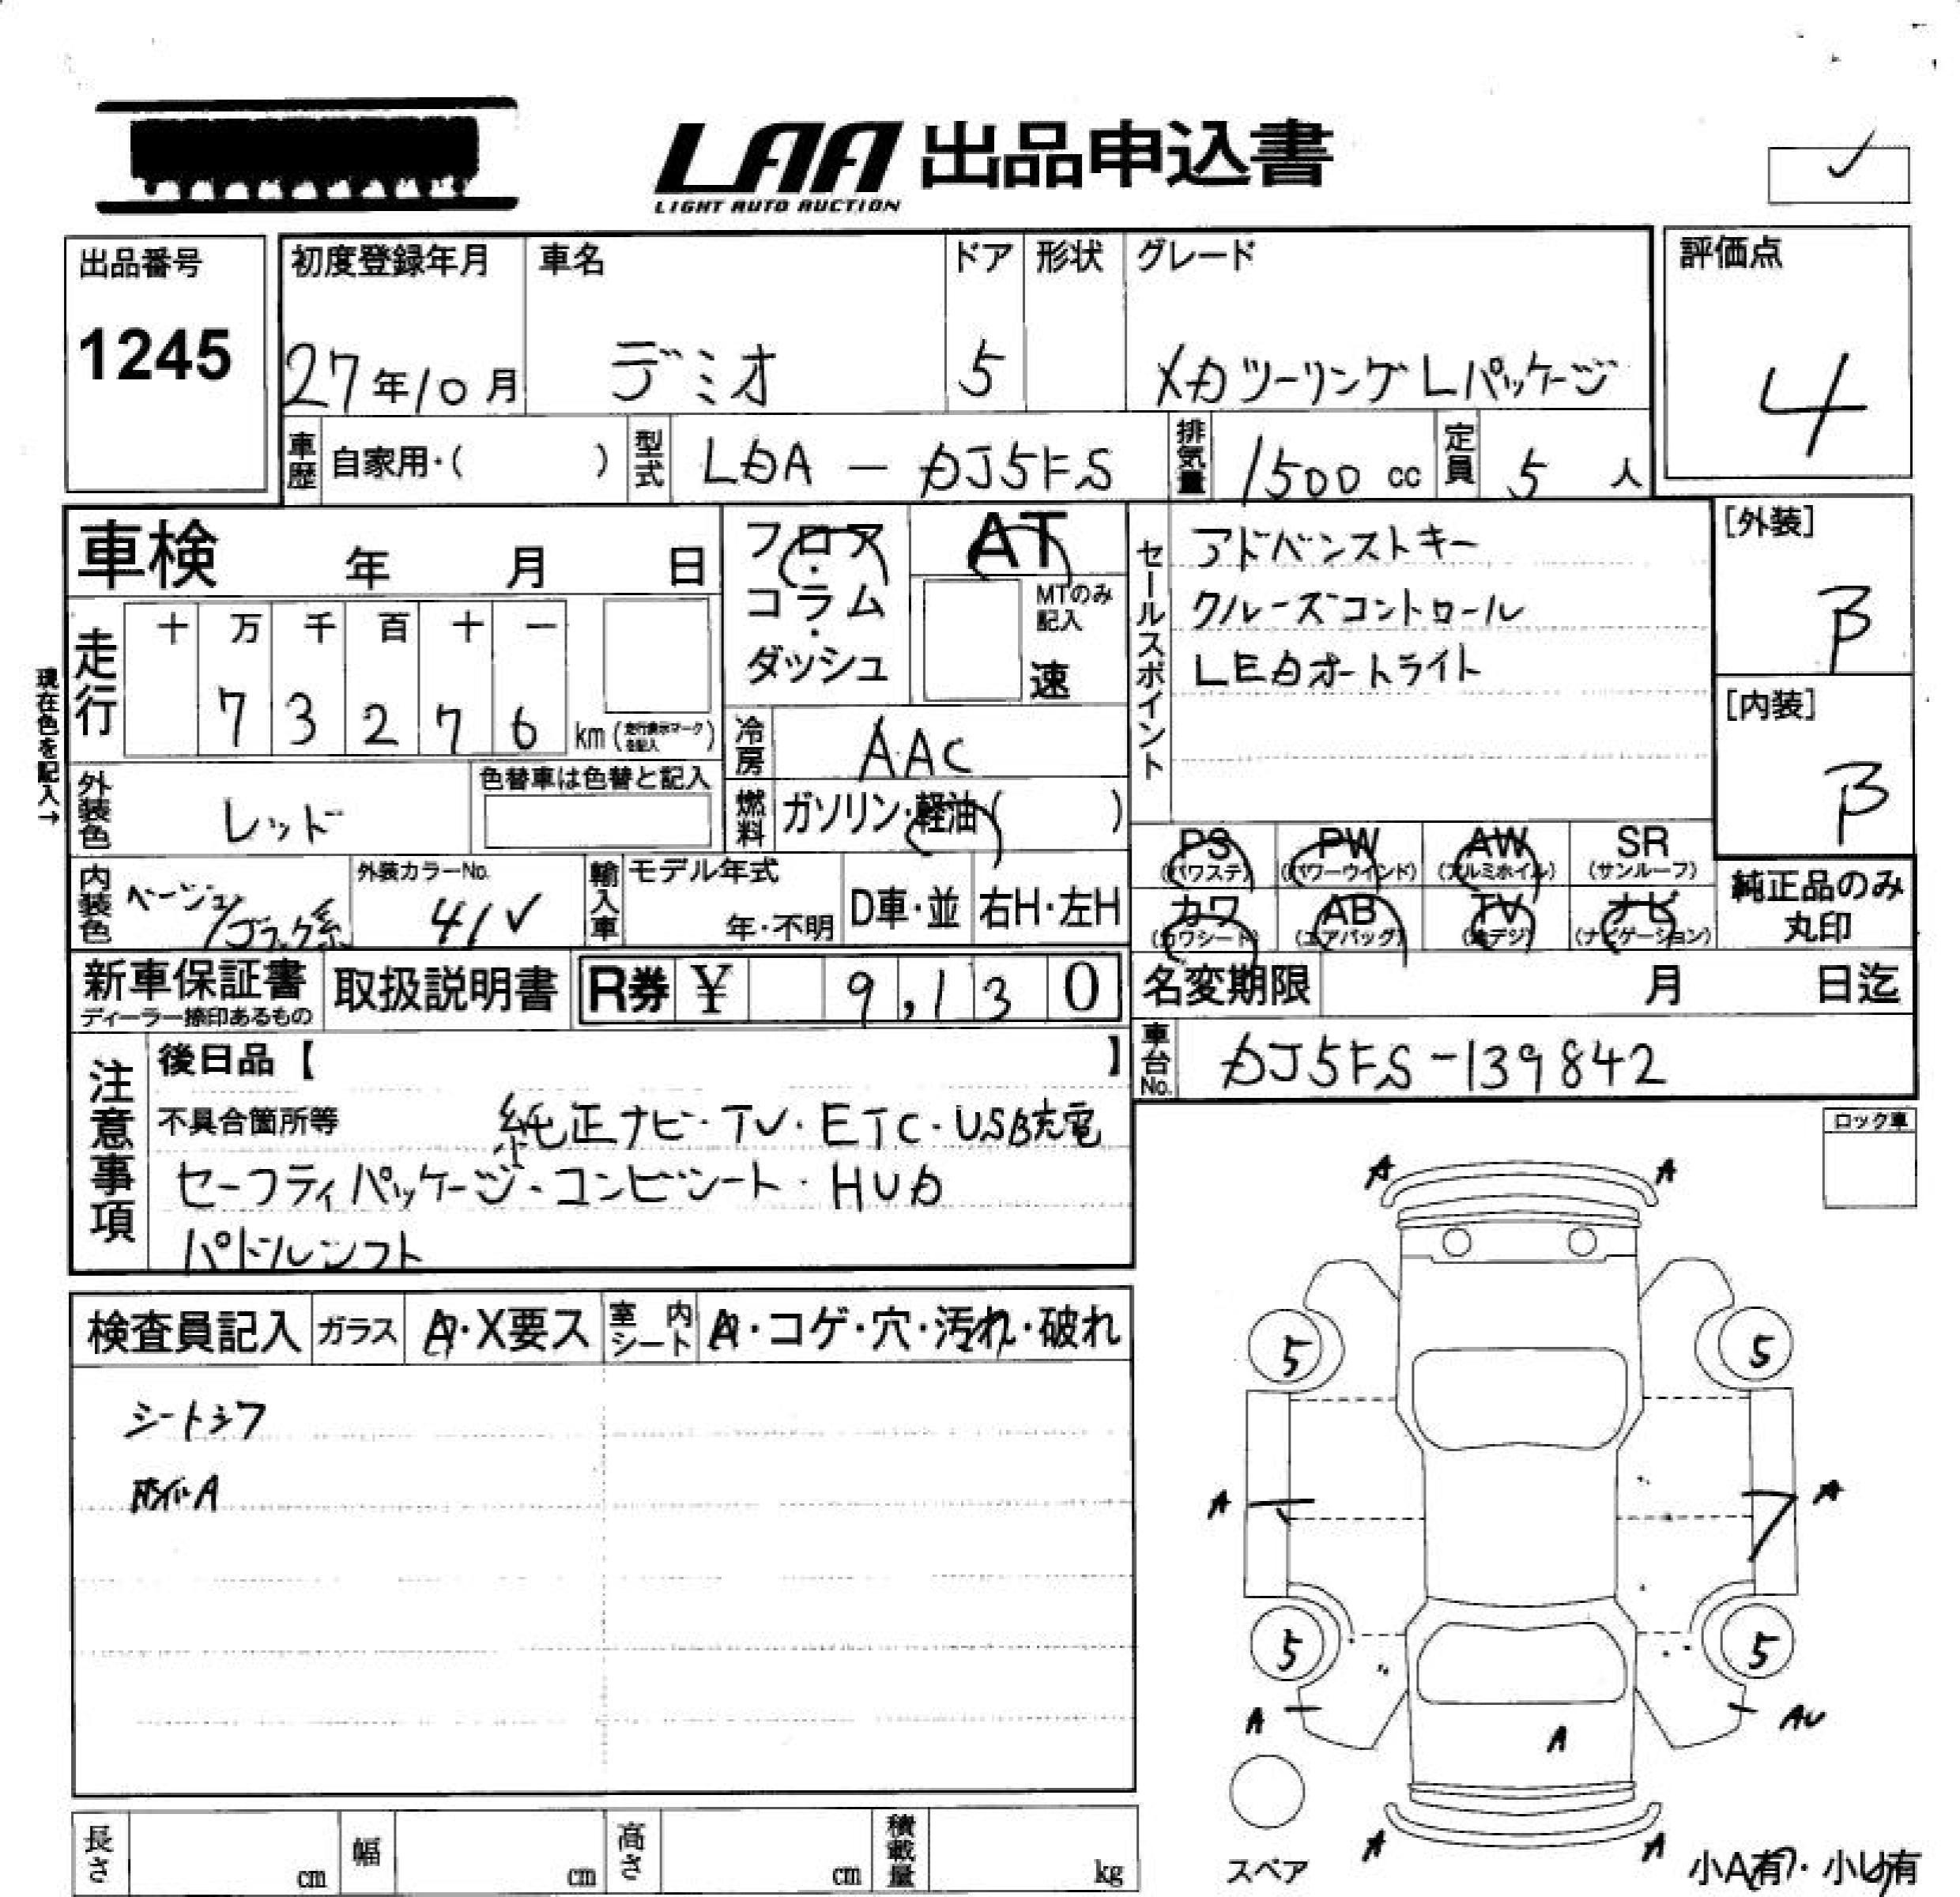 LAA 出品申込書
LIGHT AUTO AUCTION
出品番号
1245
初度登録年月
27年10月
車名
デミオ
ドア
5
形状
グレード
XDツーリングLパッケージ
評価点
4
車歴
自家用・( )
型式
LDA － DJ5FS
排気量
1500 cc
定員
5 人
車検 年 月 日
走行
十 万 千 百 十 一
7 3 2 7 6 km (走行表示マークを記入)
現在色を記入→
外装色
レッド
色替車は色替と記入
内装色
ベージュ/ブラック系
外装カラーNo.
41V
フロア・コラム・ダッシュ
AT
MTのみ記入
速
冷房
AAC
燃料
ガソリン・軽油( )
輸入車
モデル年式
年・不明
D車・並
右H・左H
セールスポイント
アドバンストキー
クルーズコントロール
LEDオートライト
[外装]
B
[内装]
B
PS (パワステ)
PW (パワーウインド)
AW (アルミホイル)
SR (サンルーフ)
カワ (カワシート)
AB (エアバッグ)
TV (地デジ)
ナビ (ナビゲーション)
純正品のみ丸印
新車保証書
ディーラー捺印あるもの
取扱説明書
R券 ¥ 9,130
名変期限 月 日迄
車台No.
DJ5FS-139842
注意事項
後日品【 】
不具合箇所等 純正ナビ・TV・ETC・USB充電
セーフティパッケージ・コンビシート・HUD
パドルシフト
ロック車
検査員記入
ガラス
A・X要ス
室内シート
A・コゲ・穴・汚れ・破れ
シートシワ
A
A A
5 5
A A
5 5
A AU
A
A A
スペア
小A有・小U有
長さ cm
幅 cm
高さ cm
積載量 kg